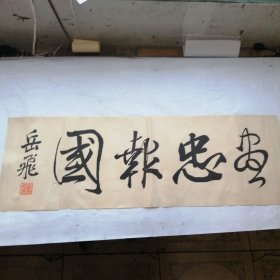 盡忠報國
岳飛